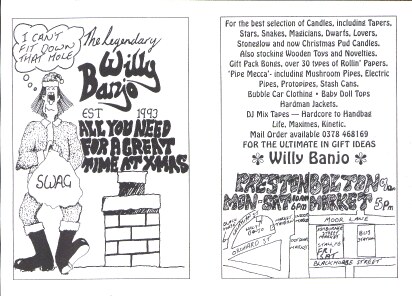 I CAN'T
FIT DOWN
THAT HOLE
The Legendary
Willy
Banjo
EST 1993
ALL YOU NEED
FOR A GREAT
TIME AT XMAS
SWAG
For the best selection of Candles, including Tapers,
Stars, Snakes, Magicians, Dwarfs, Lovers,
Stoneglow and now Christmas Pud Candles.
Also stocking Wooden Toys and Novelties.
Gift Pack Bongs, over 30 types of Rollin' Papers.
'Pipe Mecca'- including Mushroom Pipes, Electric
Pipes, Protopipes, Stash Cans.
Bubble Car Clothing • Baby Doll Tops
Hardman Jackets.
DJ Mix Tapes — Hardcore to Handbag
Life, Maximes, Kinetic.
Mail Order available 0378 468169
FOR THE ULTIMATE IN GIFT IDEAS
Willy Banjo
PRESTON BOLTON
MON-SAT MARKET
MOOR LANE
BUS
STATION
FRI
SAT
ORCHARD ST
BLACKHORSE STREET